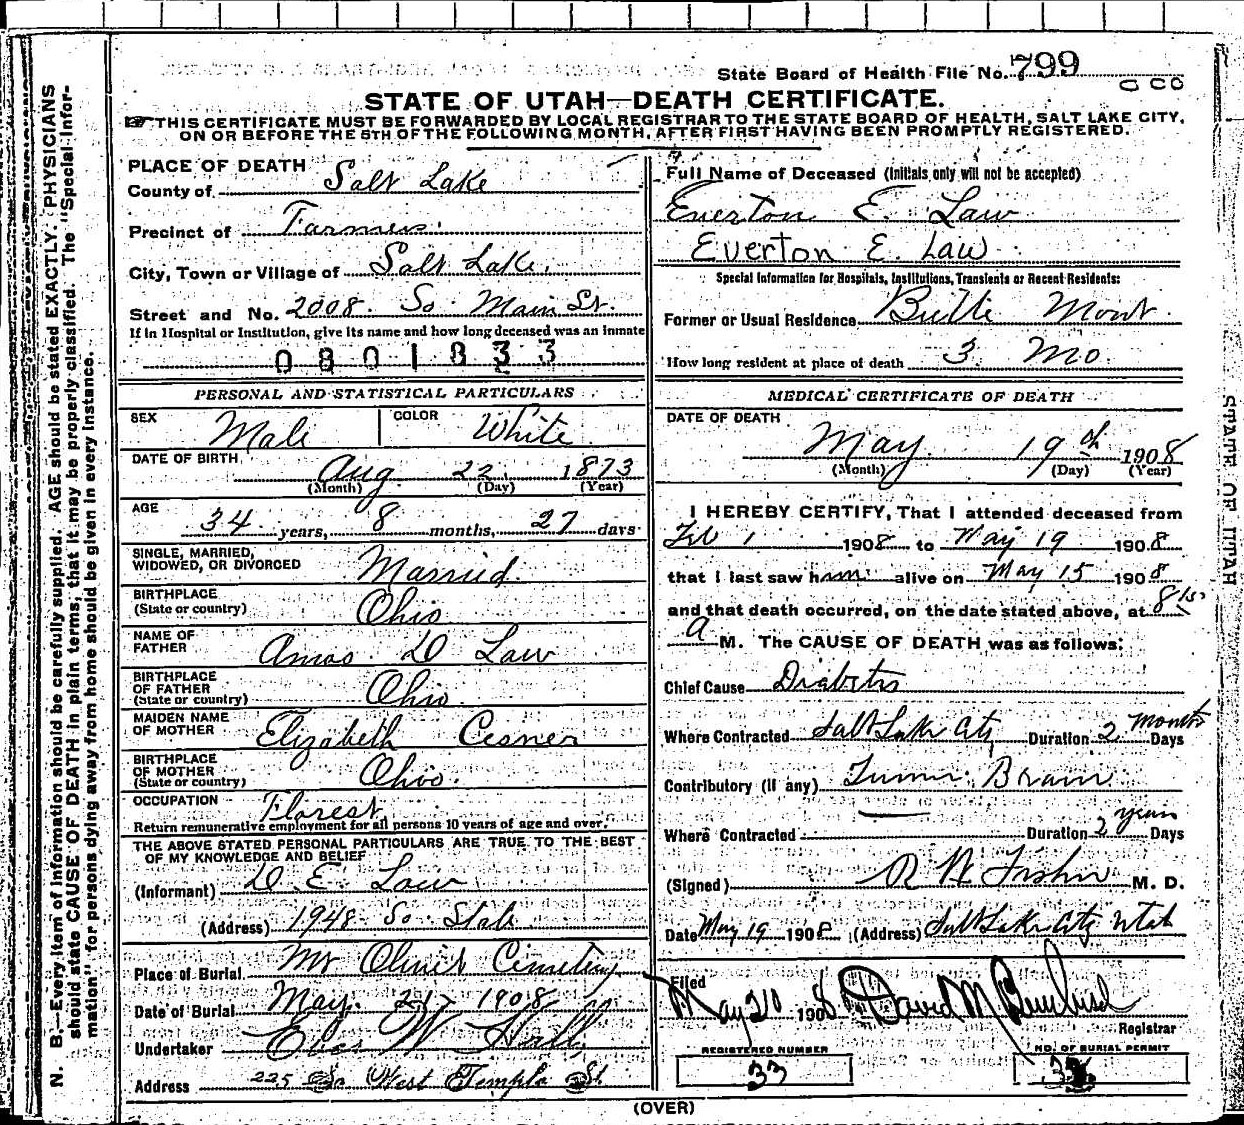 State Board of Health File No. 799
STATE OF UTAH—DEATH CERTIFICATE.
THIS CERTIFICATE MUST BE FORWARDED BY LOCAL REGISTRAR TO THE STATE BOARD OF HEALTH, SALT LAKE CITY,
ON OR BEFORE THE 5TH OF THE FOLLOWING MONTH, AFTER FIRST HAVING BEEN PROMPTLY REGISTERED.
PLACE OF DEATH
County of Salt Lake
Precinct of Farmers.
City, Town or Village of Salt Lake.
Street and No. 2008. So. Main St.
If in Hospital or Institution, give its name and how long deceased was an inmate
0801833
PERSONAL AND STATISTICAL PARTICULARS
SEX Male COLOR White
DATE OF BIRTH Aug. 22, 1873
(Month) (Day) (Year)
AGE 34 years, 8 months, 27 days
SINGLE, MARRIED,
WIDOWED, OR DIVORCED Married
BIRTHPLACE
(State or country) Ohio
NAME OF
FATHER Amos D Law
BIRTHPLACE
OF FATHER
(State or country) Ohio
MAIDEN NAME
OF MOTHER Elizabeth Cisner
BIRTHPLACE
OF MOTHER
(State or country) Ohio.
OCCUPATION Florest
Return remunerative employment for all persons 10 years of age and over.
THE ABOVE STATED PERSONAL PARTICULARS ARE TRUE TO THE BEST
OF MY KNOWLEDGE AND BELIEF
(Informant) D E Law
(Address) 1948 So. State
Place of Burial Mt Olivet Cemetery
Date of Burial May. 21, 1908
Undertaker W Hall
Address 225 So West Temple St
Full Name of Deceased (Initials only will not be accepted)
Everton E. Law
Everton E. Law
Special Information for Hospitals, Institutions, Transients or Recent Residents:
Former or Usual Residence Butte Mont.
How long resident at place of death 3 Mo.
MEDICAL CERTIFICATE OF DEATH
DATE OF DEATH
May 19th 1908
(Month) (Day) (Year)
I HEREBY CERTIFY, That I attended deceased from
Feb 1 1908 to May 19 1908
that I last saw him alive on May 15 1908
and that death occurred, on the date stated above, at 8 15
a M. The CAUSE OF DEATH was as follows:
Chief Cause Diabetes
Where Contracted Salt Lake City Duration 2 months Days
Contributory (if any) Tumor Brain
Where Contracted Duration 2 years Days
(Signed) Fisher M. D.
Date May 19 1908 (Address) Salt Lake City Utah
Filed
May 20 1908 David M
Registrar
REGISTERED NUMBER
33
NO. OF BURIAL PERMIT
(OVER)
N. B.—Every item of information should be carefully supplied. AGE should be stated EXACTLY. PHYSICIANS
should state CAUSE OF DEATH in plain terms, that it may be properly classified. The "Special Infor-
mation" for persons dying away from home should be given in every instance.
STATE OF UTAH